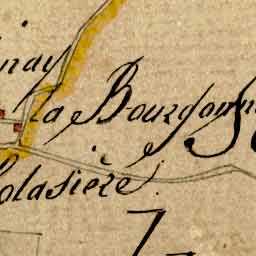 inay
la Bourgonn
olasière